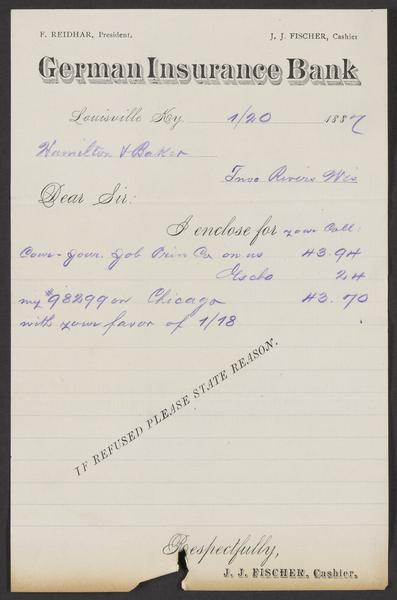 F. REIDHAR, President. J. J. FISCHER, Cashier
German Insurance Bank
Louisville Ky. 1/20 1887
Hamilton & Baker
Two Rivers Wis
Dear Sir:
I enclose for your Coll:
Cour-Jour. Job Prin Co on us 43.94
Exchg 24
my #98299 on Chicago 43.70
with your favor of 1/18
IF REFUSED PLEASE STATE REASON.
Respectfully,
J. J. FISCHER, Cashier.